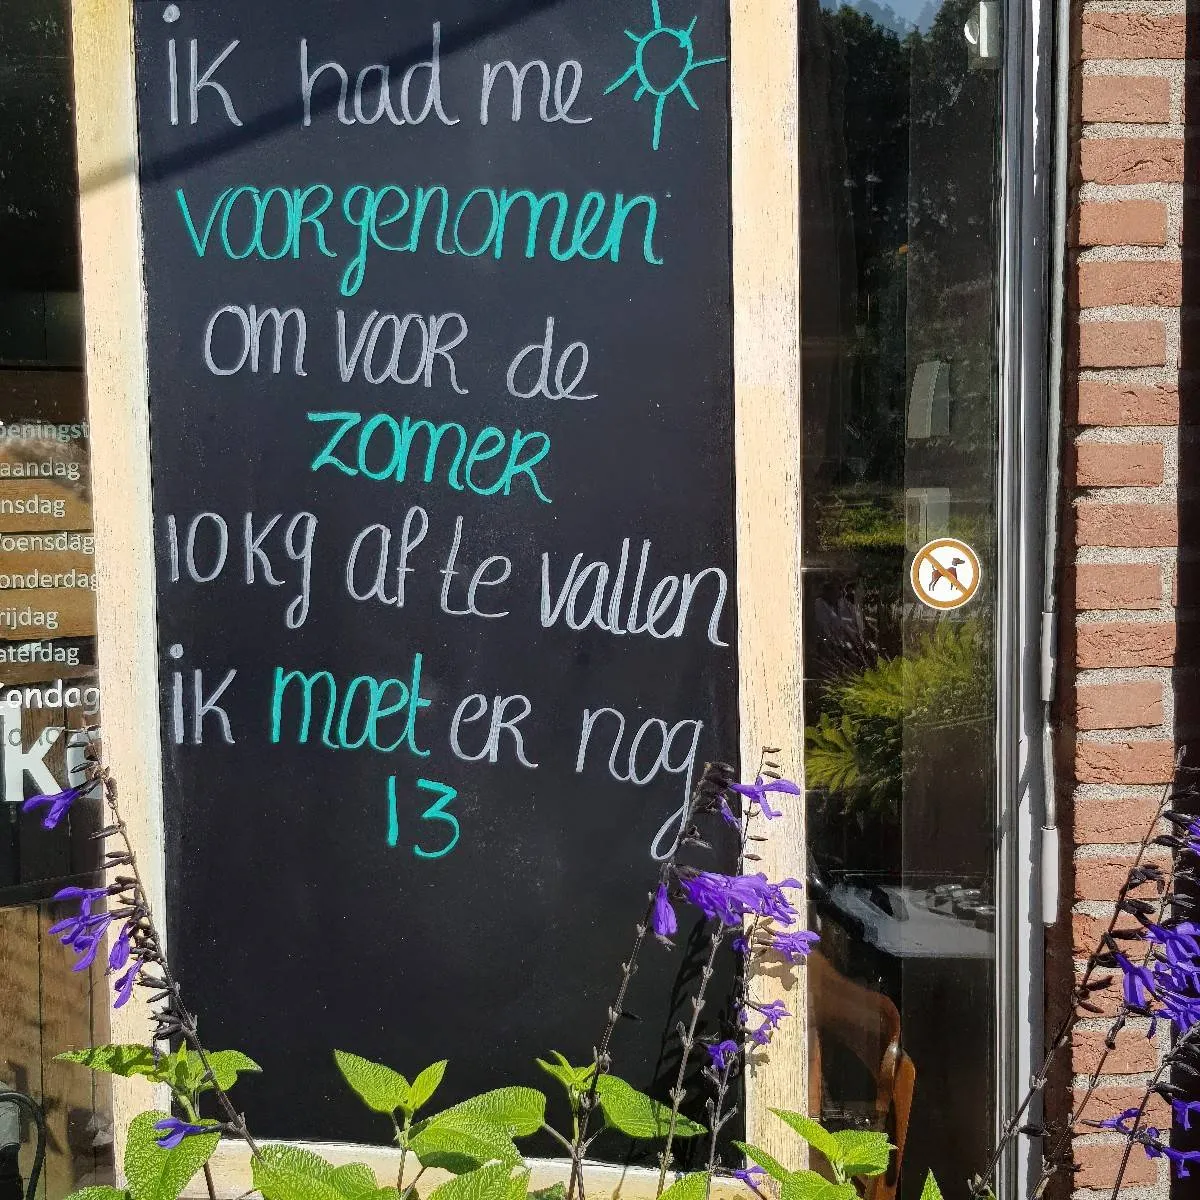 ik had me
voorgenomen
om voor de
zomer
10 kg af te vallen
ik moet er nog
13
peningst
aandag
nsdag
oensdag
onderdag
rijdag
aterdag
ondag